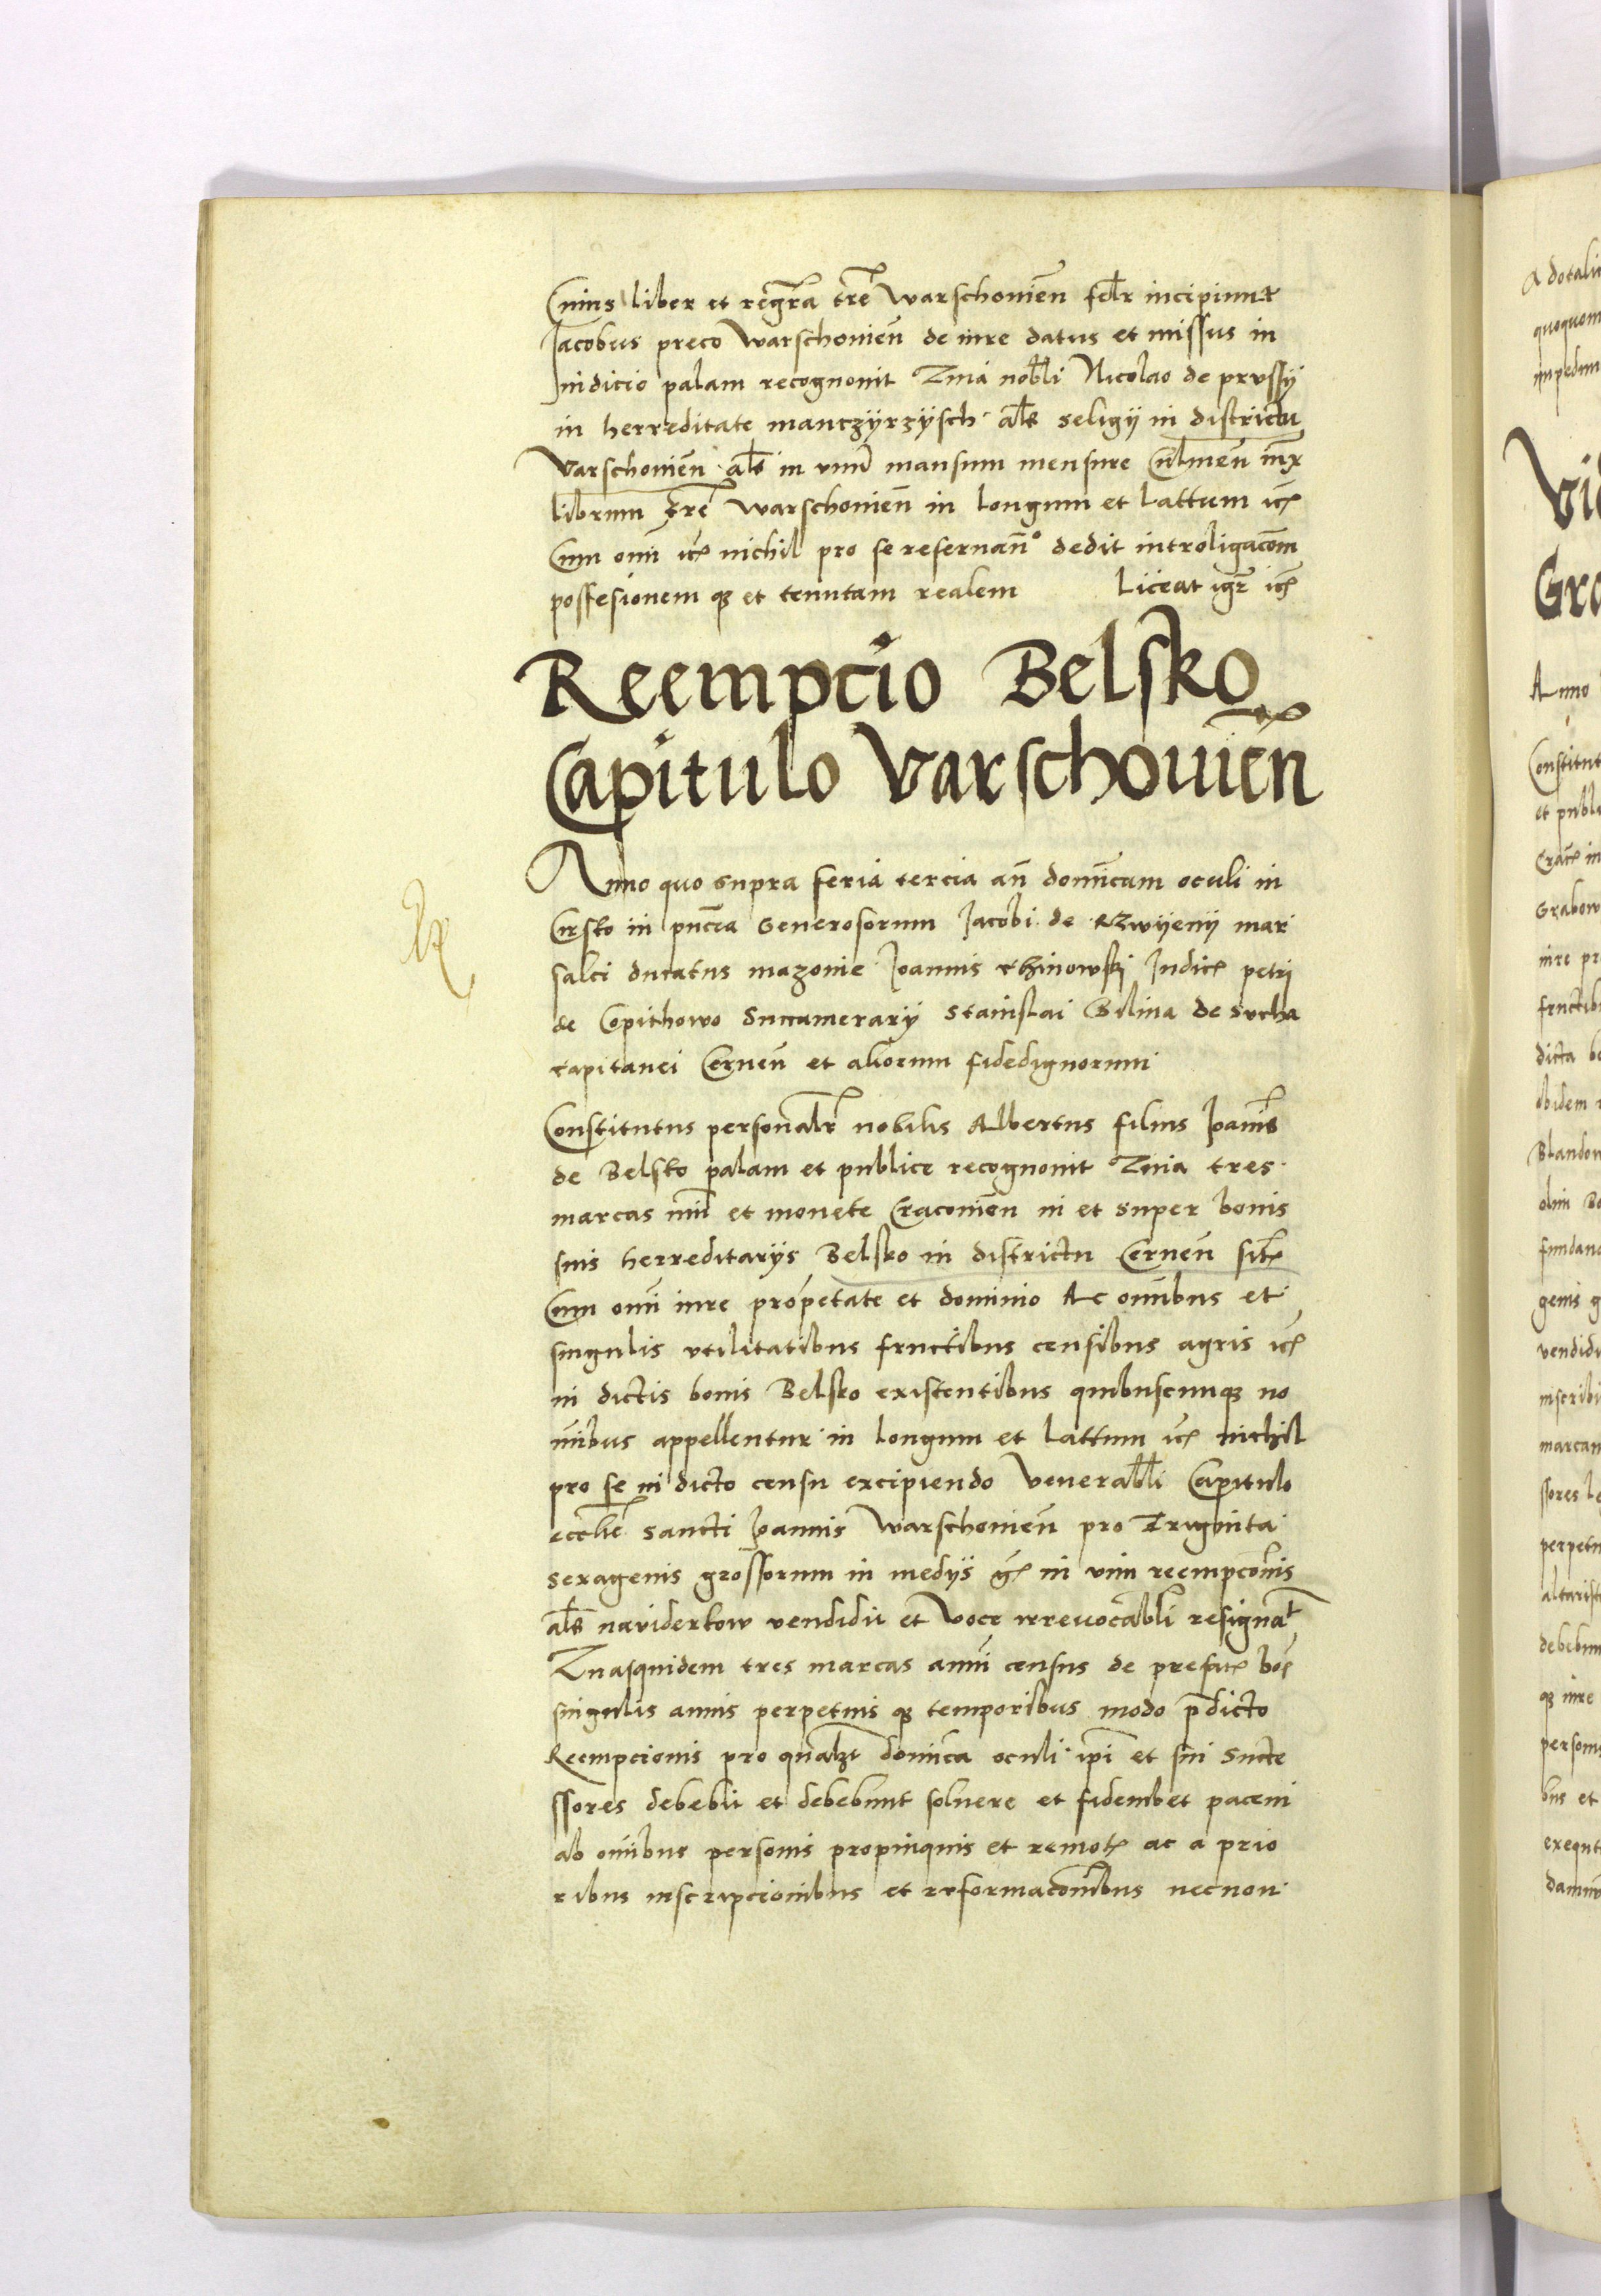 Cuius liber et regr̄a tr̄e Warschouien̄ fel̄r incipiunt
Jacobus preco Warschouien̄ de iure datus et missus in
Judicio palam recognouit Quia nobl̄i Nicolao de prussÿ
in herreditate manczÿrzÿsch al̄s seligÿ in districtu
Varschouien̄ al̄s in vnū mansum mensure Culmen̄ iux̄
librum tr̄e Warschouien̄ in longum et lattum etc̄
Cum om̄i etc̄ nichil pro se reseruan̄º dedit introligacōm
possesionem qз et tenutam realem Liceat igr̄ etc̄
Reempcio Belsko
Capitulo Varschouien̄
Anno quo supra feria tercia an̄ domīcam oculi in
Cirsko in pn̄cia Generosorum Jacobi de Rzwÿenÿ mar
salci ducatus mazouie Joannis rhinowski Judic̄ petri
de Copithowo Succamerarÿ Stanislai Bilina de sucha
capitanei Cernen̄ et aliorum fidedignorum
Constitutus personalr̄ nobilis Albertus filius Joannis
de Belsko palam et publice recognouit Quia tres
marcas nūi et monete Cracouien̄ in et super bonis
suis herreditarÿs Belsko in districtu Cernen̄ sit̄
Cum om̄i iure propetate et dominio Ac om̄ibus et
singulis vtilitatibus fructibus censibus agris etc̄
in dictis bonis Belsko existentibus quibuscunqз no
īnibus appellentur in longum et lattum etc̄ nichil
pro se in dicto censu excipiendo Venerabl̄i Capitulo
eccl̄ie sancti Joannis Warschouien̄ pro Triginta
sexagenis grossorum in medÿs gr̄ in vim reempcōnis
al̄s naviderkow vendidit et voce irreuocabl̄i resignat̄
Quasquidem tres marcas anni census de prefat̄ bōs
singulis annis perpetuis qз temporibus modo p̄dicto
Reempcionis pro qual̄zt domīca oculi ip̄i et sui succe
ssores debebit et debebunt soluere et fidembet pacem
ab om̄ibus personis propinquis et remot̄ ac a prio
ribus inscripcionibus et reformacōnibus necnon